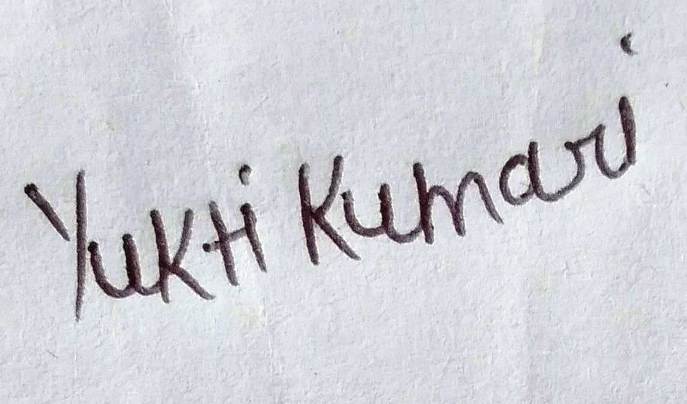 Yukti Kumari